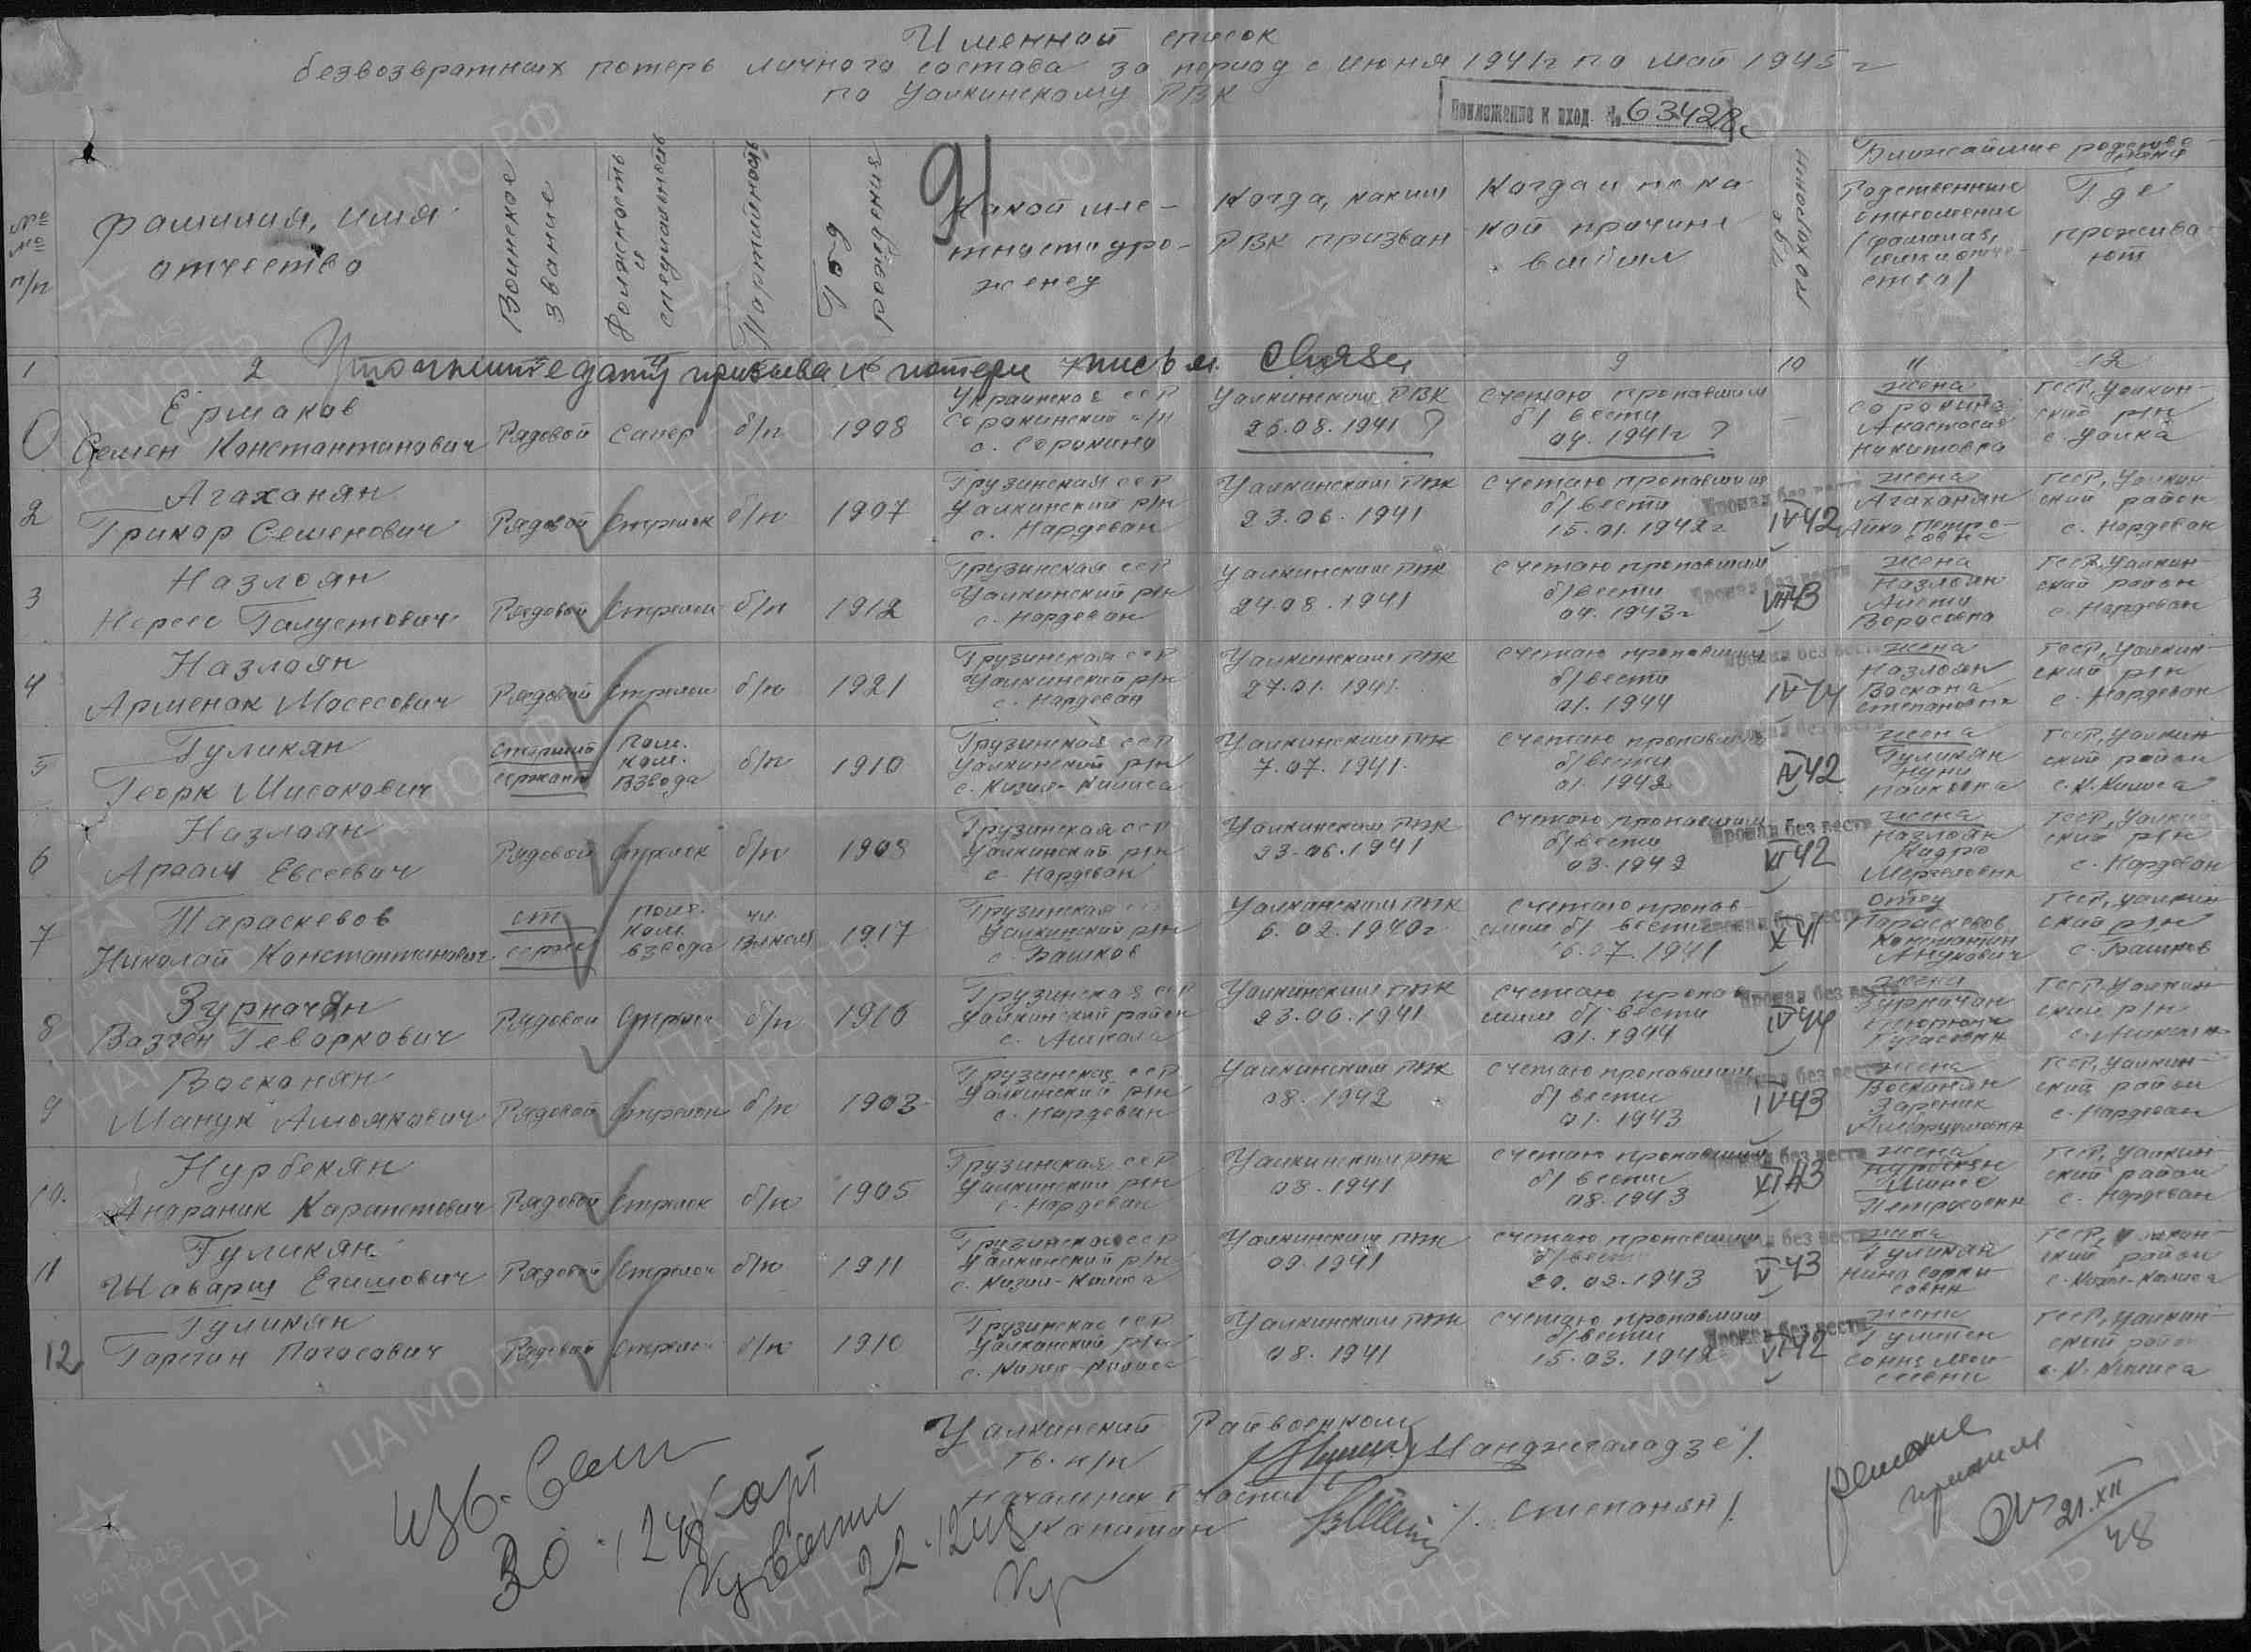 Именной список
безвозвратных потерь личного состава за период с июня 1941г по май 1945г
по Цалкинскому РВК
Приложение к вход. № 63428с
91
№№ п/п
Фамилия, имя
отчество
Воинское звание
Должность и специальность
Партийность
Год рождения
Какой ме-
стности уро-
женец
Когда, каким
РВК призван
Когда и по ка-
кой причине
выбыл
Ближайшие родственники
Родственные
отношение
(фамилия,
имя и отче-
ство)
Где
прожива-
ют
1
2
Уточните дату призыва и потери письм. связи
9
10
11
12
Ермаков
Семен Константинович
Рядовой
Сапер
б/п
1908
Украинская ССР
Сорокинский р/н
с. Сорокино
Цалкинским РВК
26.08.1941 ?
Считаю пропавшим
б/вести
04.1941г ?
—
жена
Сорокина
Анастасия
Никитовна
ГССР, Цалкин-
ский р/н
с. Цалка
2
Агаханян
Грикор Семенович
Рядовой
Стрелок
б/п
1907
Грузинская ССР
Цалкинский р/н
с. Нардеван
Цалкинским РВК
23.06.1941
Считаю пропавшим
б/вести
15.01.1942г
Пропал без вести
IV 42
жена
Агаханян
Айко Петро-
совна
ГССР, Цалкин-
ский район
с. Нардеван
3
Назлоян
Нерсес Галустович
Рядовой
Стрелок
б/п
1912
Грузинская ССР
Цалкинский р/н
с. Нардеван
Цалкинским РВК
24.08.1941
Считаю пропавшим
б/вести
04.1943г
Пропал без вести
VII 43
жена
Назлоян
ГССР, Цалкин-
ский район
с. Нардеван
4
Назлоян
Арменак Мосесович
Рядовой
Стрелок
б/п
1921
Грузинская ССР
Цалкинский р/н
с. Нардеван
Цалкинским РВК
27.01.1941
Считаю пропавшим
б/вести
01.1944
Пропал без вести
IV 44
жена
Назлоян
Воскана
Степановна
ГССР, Цалкин-
ский р/н
с. Нардеван
5
Гуликян
Георк Мисакович
Старший
сержант
Пом.
ком.
взвода
б/п
1910
Грузинская ССР
Цалкинский р/н
с. Кизил-Килиса
Цалкинским РВК
7.07.1941
Считаю пропавшим
б/вести
01.1942
Пропал без вести
IV 42
жена
Гуликян
ГССР, Цалкин-
ский район
с. К. Килиса
6
Назлоян
Арам Евсеевич
Рядовой
Стрелок
б/п
1908
Грузинская ССР
Цалкинский р/н
с. Нардеван
Цалкинским РВК
23.06.1941
Считаю пропавшим
б/вести
03.1942
Пропал без вести
VI 42
жена
Назлоян
ГССР, Цалкин-
ский р/н
с. Нардеван
7
Параскевов
Николай Константинович
ст
серж
пом.
ком.
взвода
чл.
1917
Грузинская ССР
Цалкинский р/н
с. Башков
Цалкинским РВК
6.02.1940г
Считаю пропав-
шим б/вести
6.07.1941
Пропал без вести
XI 41
отец
Параскевов
Константин
ГССР, Цалкин-
ский р/н
с. Башков
8
Зурначян
Вазген Геворкович
Рядовой
Стрелок
б/п
1916
Грузинская ССР
Цалкинский район
с. Ашкала
Цалкинским РВК
23.06.1941
Считаю пропав-
шим б/вести
01.1944
Пропал без вести
IV 44
жена
Зурначян
ГССР, Цалкин-
ский р/н
с. Ашкала
9
Восканян
Манук
Рядовой
Стрелок
б/п
1903
Грузинская ССР
Цалкинский р/н
с. Нардеван
Цалкинским РВК
08.1942
Считаю пропавшим
б/вести
01.1943
Пропал без вести
IV 43
жена
Восканян
Зарвник
ГССР, Цалкин-
ский район
с. Нардеван
10.
Нурбекян
Андраник Карапетович
Рядовой
Стрелок
б/п
1905
Грузинская ССР
Цалкинский р/н
с. Нардеван
Цалкинским РВК
08.1941
Считаю пропавшим
б/вести
08.1943
Пропал без вести
XI 43
жена
Нурбекян
Петросовна
ГССР, Цалкин-
ский район
с. Нардеван
11
Гуликян
Шаварш Егишович
Рядовой
Стрелок
б/п
1911
Грузинская ССР
Цалкинский р/н
с. Кизил-Килиса
Цалкинским РВК
09.1941
Считаю пропавшим
б/вести
20.02.1943
Пропал без вести
V 43
жена
Гуликян
Нина Сарки-
совна
ГССР, Цалкин-
ский район
с. Кизил-Килиса
12
Гуликян
Гарегин Погосович
Рядовой
Стрелок
б/п
1910
Грузинская ССР
Цалкинский р/н
с. Кизил-Килиса
Цалкинским РВК
08.1941
Считаю пропавшим
б/вести
15.03.1942
Пропал без вести
VI 42
жена
Гуликян
ГССР, Цалкин-
ский район
с. К. Килиса
Цалкинский Райвоенком
гв. п/п
/Манджгаладзе/.
Начальник части
Капитан
/. Степанян/.
21.XII
48
30.1248
22.1248
ЦА МО РФ
ПАМЯТЬ
НАРОДА
1941-1945